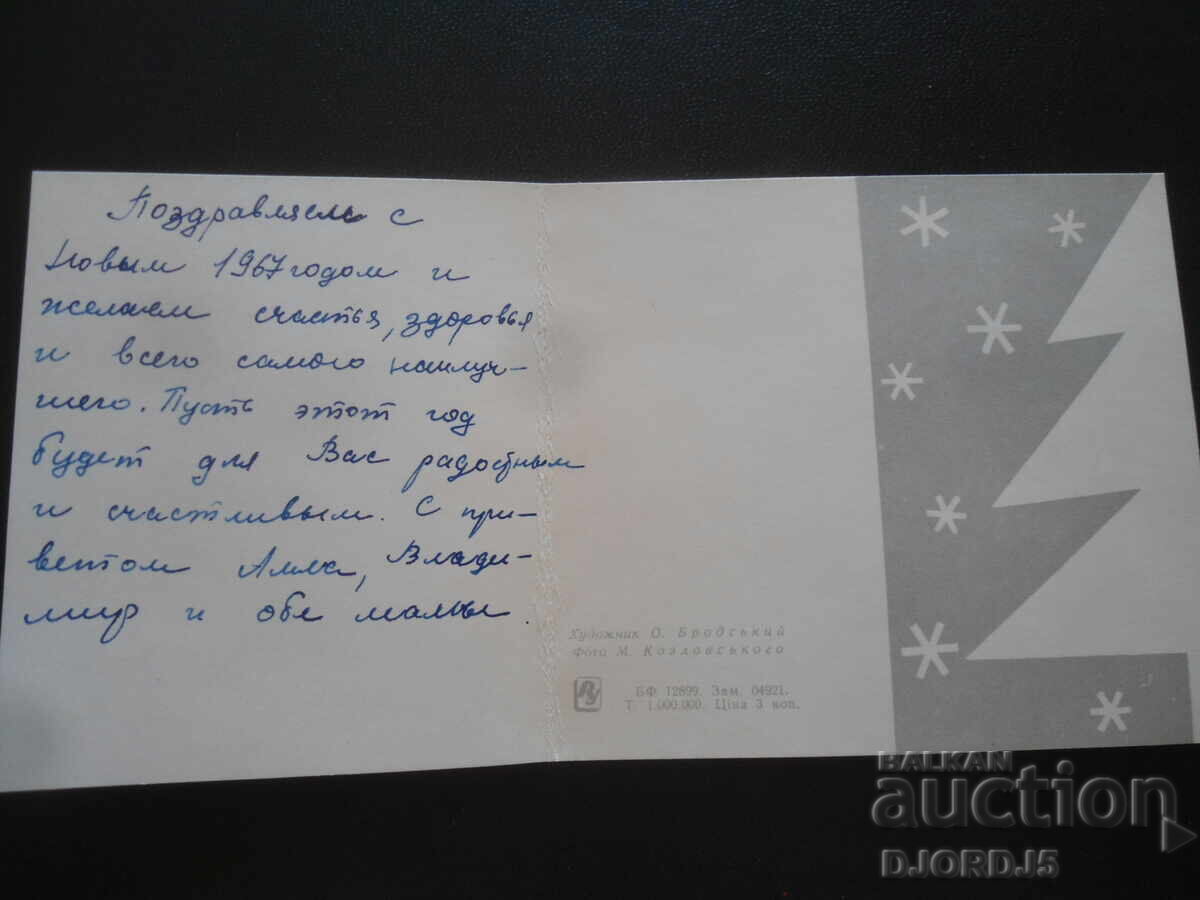 Поздравляем с
Новым 1967 годом и
желаем счастья, здоровья
и всего самого наилуч-
шего. Пусть этот год
будет для Вас радостным
и счастливым. С при-
ветом Алла, Влади-
мир и обе
Художник О. Бродський
Фото М. Козловського
БФ 12899. Зам. 04921.
Т. 1.000.000. Ціна 3 коп.
BALKAN
auction
DJORDJ5